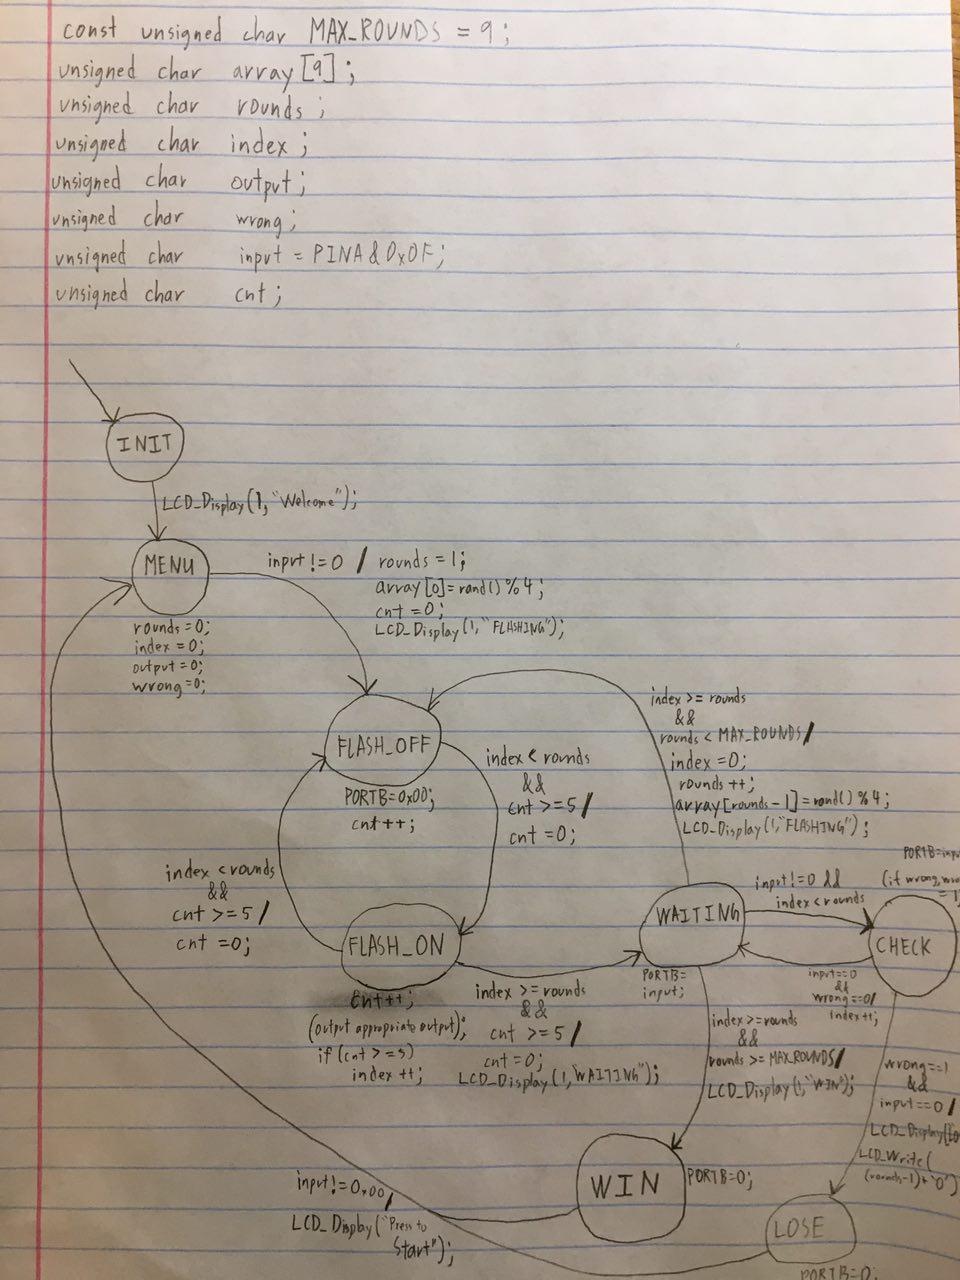 const unsigned char MAX_ROUNDS = 9;
unsigned char array[9];
unsigned char rounds;
unsigned char index;
unsigned char output;
unsigned char wrong;
unsigned char input = PINA & 0x0F;
unsigned char cnt;
INIT
LCD_Display(1, "Welcome");
MENU
rounds=0;
index=0;
output=0;
wrong=0;
input != 0 / rounds = 1;
array[0]=rand()%4;
cnt=0;
LCD_Display(1, "FLASHING");
FLASH_OFF
PORTB=0x00;
cnt++;
index < rounds
&&
cnt >= 5 /
cnt = 0;
index >= rounds
&&
rounds < MAX_ROUNDS /
index = 0;
rounds++;
array[rounds-1]=rand()%4;
LCD_Display(1, "FLASHING");
index < rounds
&&
cnt >= 5 /
cnt = 0;
FLASH_ON
cnt++;
(output appropriate output);
if (cnt >= 5)
index++;
index >= rounds
&&
cnt >= 5 /
cnt=0;
LCD_Display(1, "WAITING");
WAITING
PORTB=
input;
input != 0 &&
index < rounds
PORTB=
(if wrong,
= 1
CHECK
input==0
&&
wrong==0/
index++;
index >= rounds
&&
rounds >= MAX_ROUNDS/
LCD_Display(1, "WIN");
wrong==1
&&
input==0 /
LCD_Display(
LCD_Write(
(rounds-1)+'0')
WIN
PORTB=0;
input != 0x00/
LCD_Display("Press to
Start");
LOSE
PORTB=0;